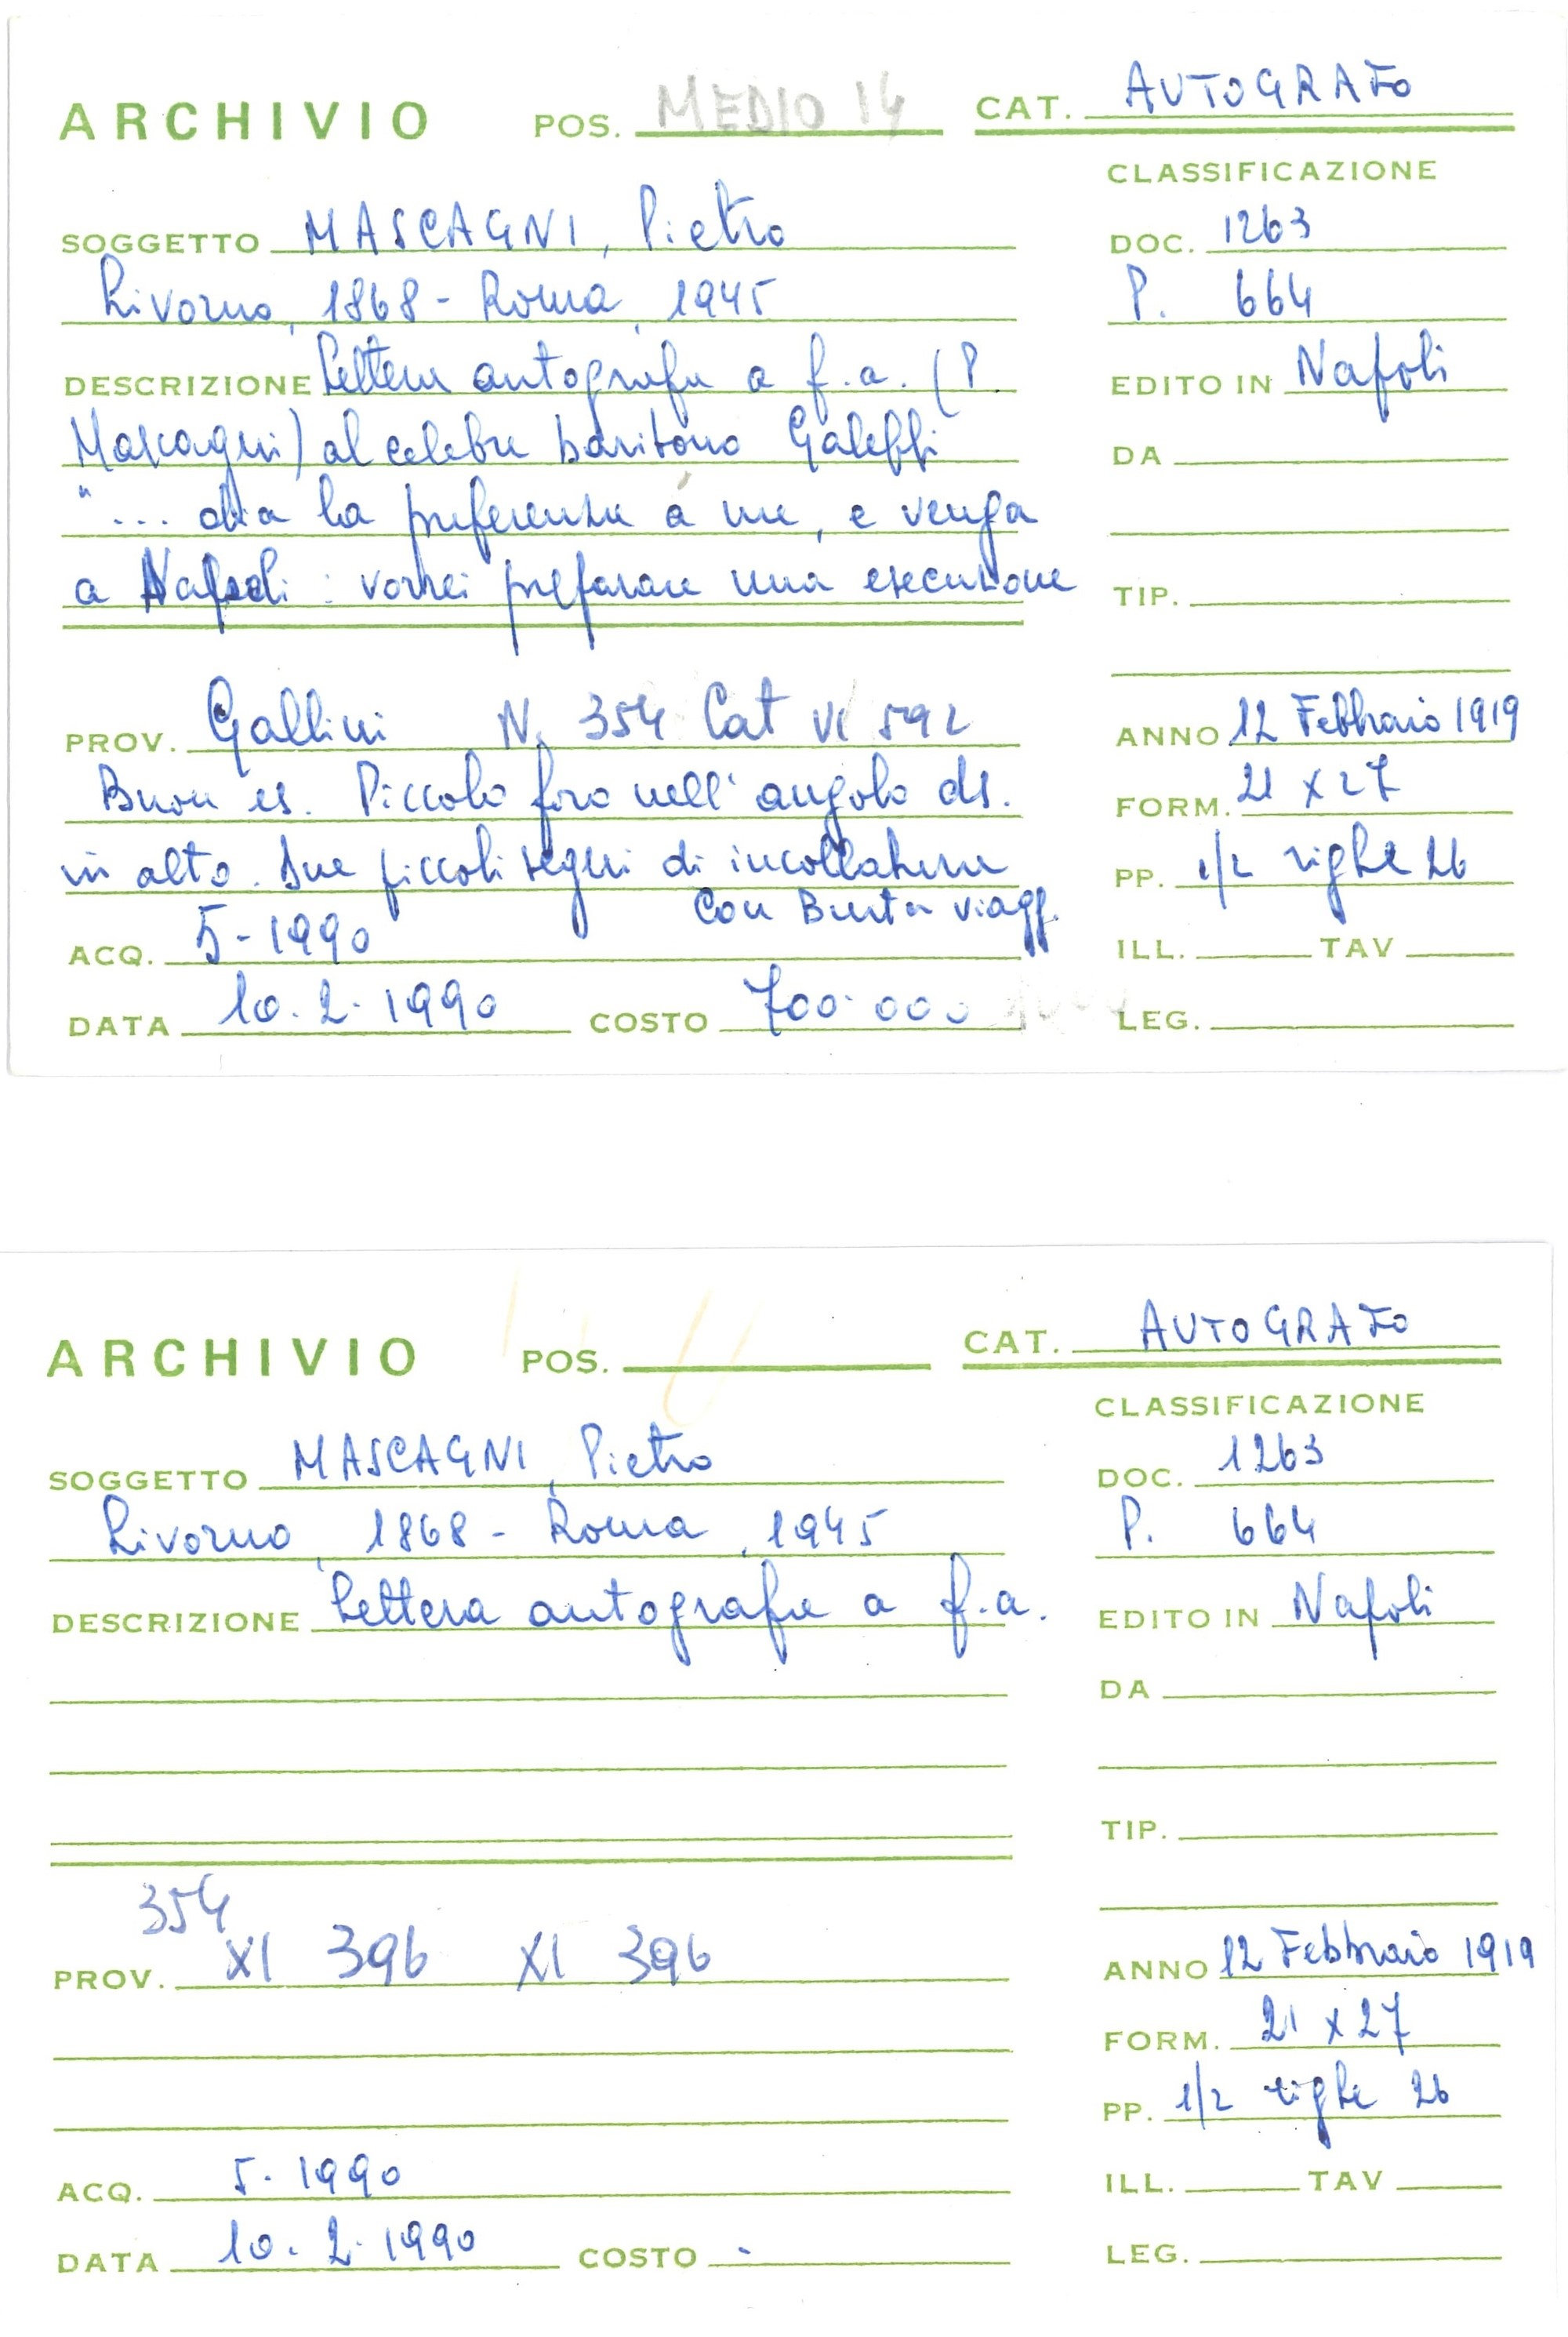 ARCHIVIO POS. MEDIO 14 CAT. AUTOGRAFO
CLASSIFICAZIONE
SOGGETTO MASCAGNI, Pietro DOC. 1263
Livorno, 1868 - Roma, 1945 P. 664
DESCRIZIONE Lettera autografa a f.a. (P. EDITO IN Napoli
Mascagni) al celebre baritono Galeffi DA
"... dia la preferenza a me, e venga
a Napoli : vorrei preparare una esecuzione TIP.
PROV. Gallini N. 354 Cat VI 592 ANNO 12 Febbraio 1919
Buon es. Piccolo foro nell'angolo ds. FORM. 21 x 27
in alto. Due piccoli segni di incollatura PP. 1/2 righe 26
Con Busta viagg.
ACQ. 5-1990 ILL. TAV
DATA 10.2.1990 COSTO 700.000 LEG.
ARCHIVIO POS. CAT. AUTOGRAFO
CLASSIFICAZIONE
SOGGETTO MASCAGNI, Pietro DOC. 1263
Livorno, 1868 - Roma, 1945 P. 664
DESCRIZIONE Lettera autografa a f.a. EDITO IN Napoli
DA
TIP.
354
PROV. XI 396 XI 396 ANNO 12 Febbraio 1919
FORM. 21 x 27
PP. 1/2 righe 26
ACQ. 5.1990 ILL. TAV
DATA 10.2.1990 COSTO - LEG.